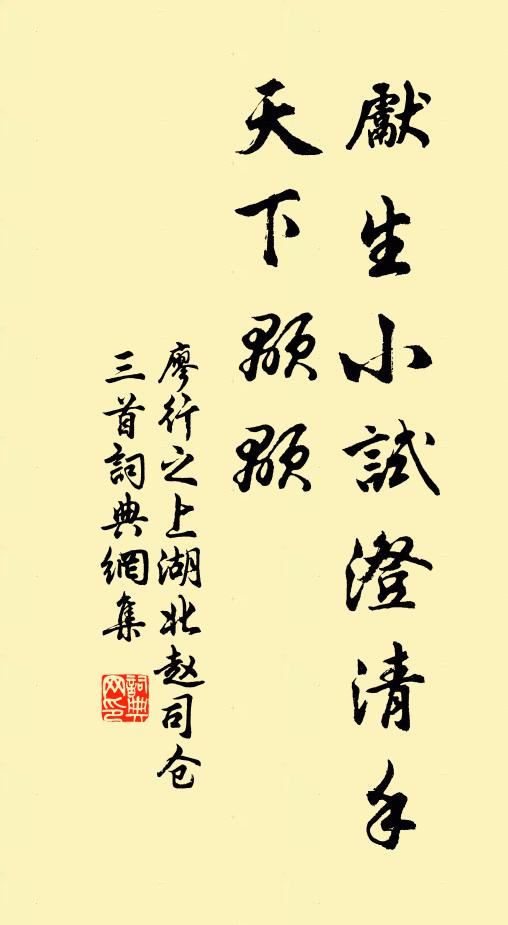 獻生小試澄清手
天下顒顒
廖行之上湖北赵司仓
三首詞典網集
詞典
网印